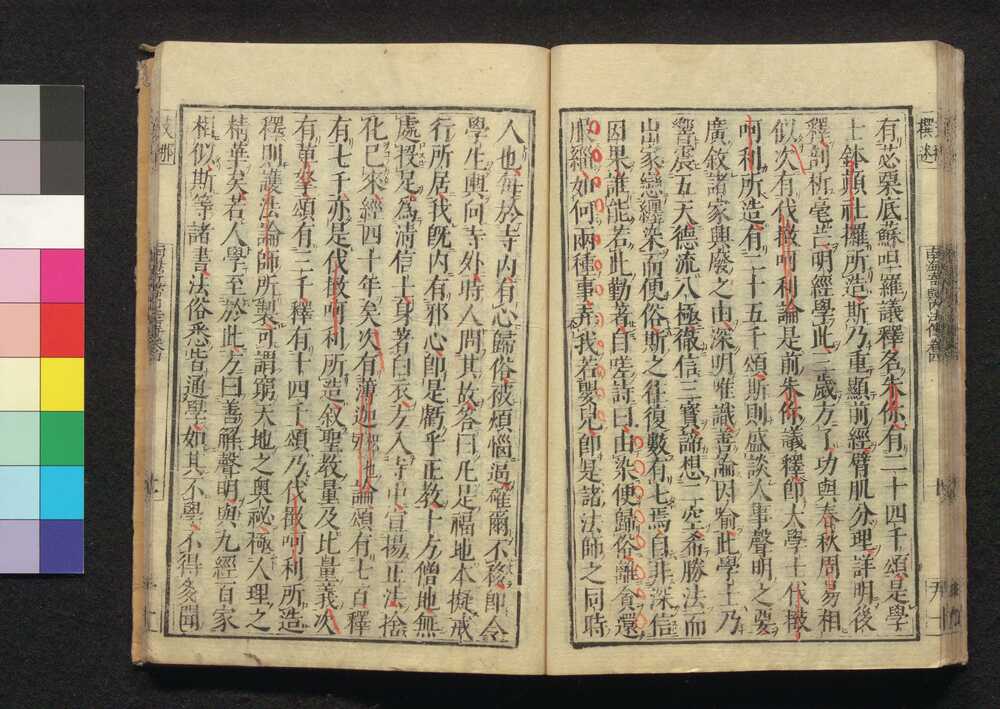 有苾芻底蘇呾羅議釋名朱你有二十四千頌是學
士鉢顛社攞所造斯乃重顯前經臂肌分理詳明後
釋剖析毫芒明經學此三歲方了功與春秋周易相
似次有伐㨖呵利論是前朱你議釋即大學士伐㨖
呵利所造有二十五千頌斯則盛談人事聲明之要
廣敘諸家興廢之由深明唯識善論因喻此學士乃
響震五天德流八極徹信三寶諦想二空希勝法而
出家戀纏染而便俗斯之往復數有七焉自非深信
因果誰能若此勤著自嗟詩曰由染便歸俗離貪還
服緇如何兩種事弄我若嬰兒即是諸法師之同時
人也每於寺內有心歸俗被煩惱逼確爾不移即令
學生輿向寺外時人問其故答曰凡是福地本擬戒
行所居我既內有邪心即是虧乎正教十方僧地無
處投足爲清信士身著白衣方入寺中宣揚正法捨
化已來經四十年矣次有薄迦也論頌有七百釋
有七千亦是伐㨖呵利所造敘聖教量及比量義次
有蓽拏頌有三千釋有十四千頌乃伐㨖呵利所造
釋則護法論師所製可謂窮天地之奧祕極人理之
精華矣若人學至於此方曰善解聲明與九經百家
相似斯等諸書法俗悉皆通學如其不學不得多聞